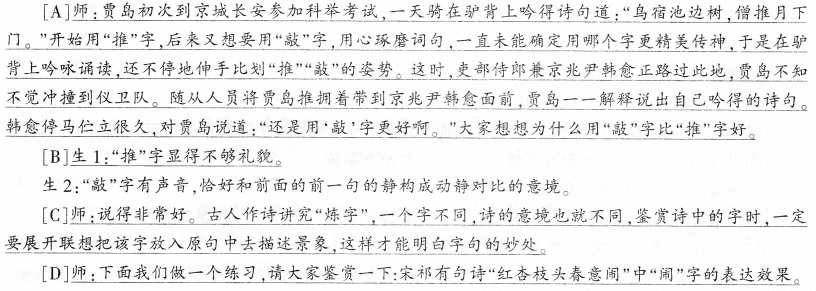 [A]师:贾岛初次到京城长安参加科举考试,一天骑在驴背上吟得诗句道:“鸟宿池边树,僧推月下
门。”开始用“推”字,后来又想要用“敲”字,用心琢磨词句,一直未能确定用哪个字更精美传神,于是在驴
背上吟咏诵读,还不停地伸手比划“推”“敲”的姿势。这时,吏部侍郎兼京兆尹韩愈正路过此地,贾岛不知
不觉冲撞到仪卫队。随从人员将贾岛推拥着带到京兆尹韩愈面前,贾岛一一解释说出自己吟得的诗句。
韩愈停马伫立很久,对贾岛说道:“还是用‘敲’字更好啊。”大家想想为什么用“敲”字比“推”字好。
[B]生1:“推”字显得不够礼貌。
生2:“敲”字有声音,恰好和前面的前一句的静构成动静对比的意境。
[C]师:说得非常好。古人作诗讲究“炼字”,一个字不同,诗的意境也就不同,鉴赏诗中的字时,一定
要展开联想把该字放入原句中去描述景象,这样才能明白字句的妙处。
[D]师:下面我们做一个练习,请大家鉴赏一下:宋祁有句诗“红杏枝头春意闹”中“闹”字的表达效果。